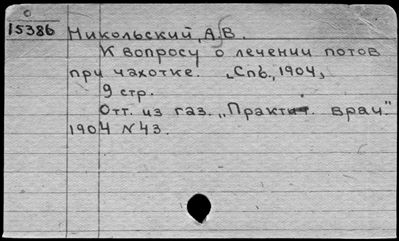 15386
Никольский, А.В.
К вопросу о лечении потов
при чахотке. „Спб., 1904,
9 стр.
Отт. из газ. „Практич. врач."
1904 №43.